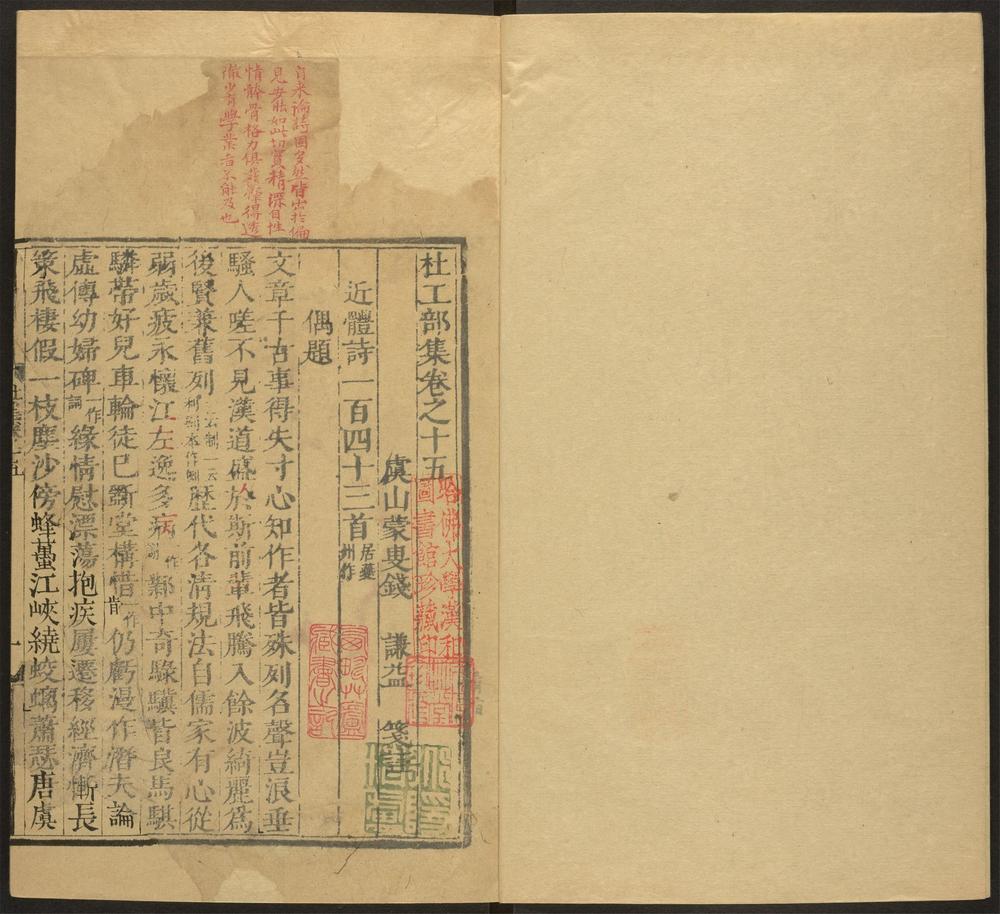 自來論詩固多然皆出於偏
見安能如此切實精深自性
情骸骨格力俱得透
徹少有學業者不能及也
杜工部集卷之十五
虞山蒙叟錢 謙益 箋註
近體詩一百四十三首居夔州作
偶題
文章千古事得失寸心知作者皆殊列名聲豈浪垂
騷人嗟不見漢道盛於斯前輩飛騰入餘波綺麗爲
後賢兼舊列歷代各清規法自儒家有心從
弱歲疲永懷江左逸多病鄴中奇騄驥皆良馬騏
驎帶好兒車輪徒已斲堂構惜一作肯仍虧漫作潛夫論
虛傳幼婦碑一作詞緣情慰漂蕩抱疾屢遷移經濟慚長
策飛棲假一枝塵沙傍蜂蠆江峽繞蛟螭蕭瑟唐虞
哈佛大學漢和
圖書館珍藏印